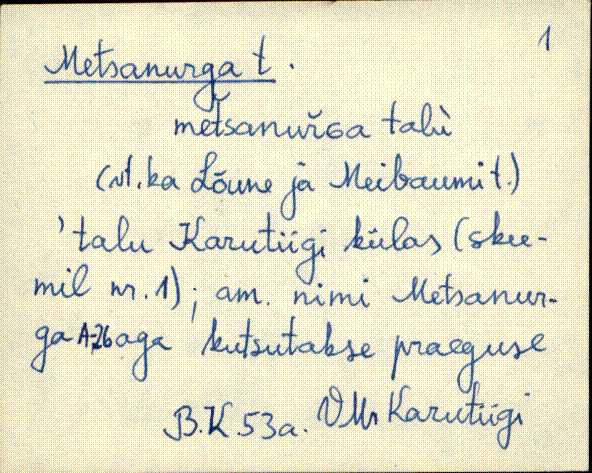 1
Metsanurga t.
metsanurGa talù
(vt. ka Lõune ja Meibaumi t.)
'talu Karutiigi külas (skee-
mil nr. 1); am. nimi Metsanur-
ga A-26 aga kutsutakse praeguse
B.K. 53a. VMr Karutiigi